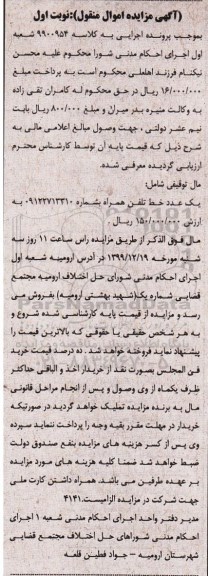 (آگهی مزایده اموال منقول):نوبت اول
بموجب پرونده اجرایی به کلاسه ۹۹۰۰۹۵۴ شعبه
اول اجرای احکام مدنی شورا محکوم علیه محسن
نیکنام فرزند اهلعلی محکوم است به پرداخت مبلغ
۱۶/۰۰۰/۰۰۰ ریال در حق محکوم له کامران تقی زاده
به وکالت منیره بدر میران و مبلغ ۸۰۰/۰۰۰ ریال بابت
نیم عشر دولتی ، جهت وصول مبالغ اعلامی مالی به
شرح ذیل که قیمت پایه آن توسط کارشناس محترم
ارزیابی گردیده معرفی شده.
مال توقیفی شامل:
یک عدد خط تلفن همراه بشماره ۰۹۱۲۲۷۱۳۳۱۰ به
ارزش ۱۵۰/۰۰۰/۰۰۰ ریال
مال فوق الذکر از طریق مزایده راس ساعت ۱۱ روز سه
شنبه مورخه ۱۳۹۹/۱۲/۱۹ در آدرس ارومیه شعبه اول
اجرای احکام مدنی شورای حل اختلاف ارومیه مجتمع
قضایی شماره یک(شهید بهشتی ارومیه) بفروش می
رسد و مزایده از قیمت پایه کارشناسی شده شروع و
به هر شخص حقیقی یا حقوقی که بالاترین قیمت را
پیشنهاد نماید فروخته خواهد شد . ده درصد قیمت خرید
فی المجلس بصورت نقد از خریدار اخذ و الباقی حداکثر
ظرف یکماه از وی وصول و پس از انجام مراحل قانونی
مال به برنده مزایده تملیک خواهد گردید در صورتیکه
خریدار در مهلت مقرر بقیه وجه را پرداخت ننماید سپرده
وی پس از کسر هزینه های مزایده بنفع صندوق دولت
ضبط خواهد شد ضمنا کلیه هزینه های مورد مزایده
بر عهده طرفین می باشد. همراه داشتن کارت ملی
جهت شرکت در مزایده الزامیست.۴۱۴۱
مدیر دفتر واحد اجرای احکام مدنی شعبه ۱ اجرای
احکام مدنی شوراهای حل اختلاف مجتمع قضایی
شهرستان ارومیه – جواد فطین قلعه